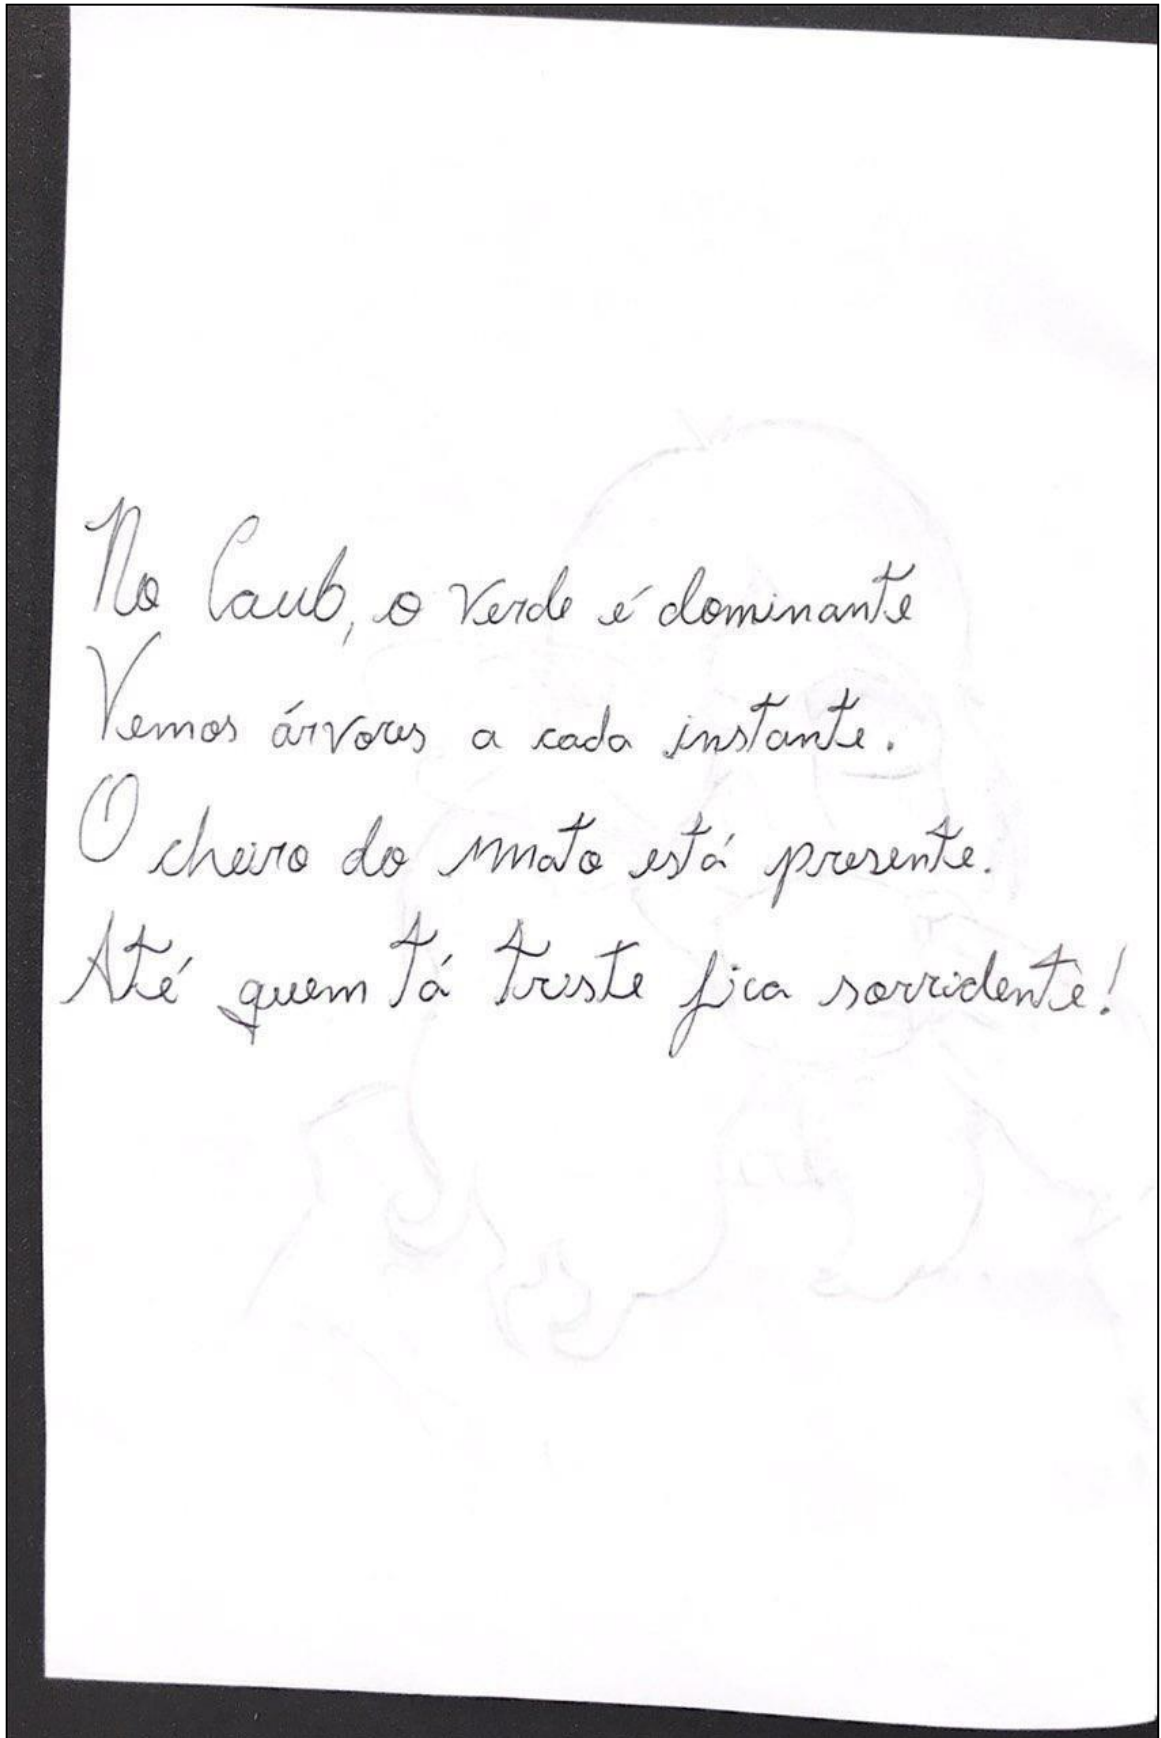 No Caub, o verde é dominante
Vemos árvores a cada instante.
O cheiro do mato está presente.
Até quem tá triste fica sorridente!